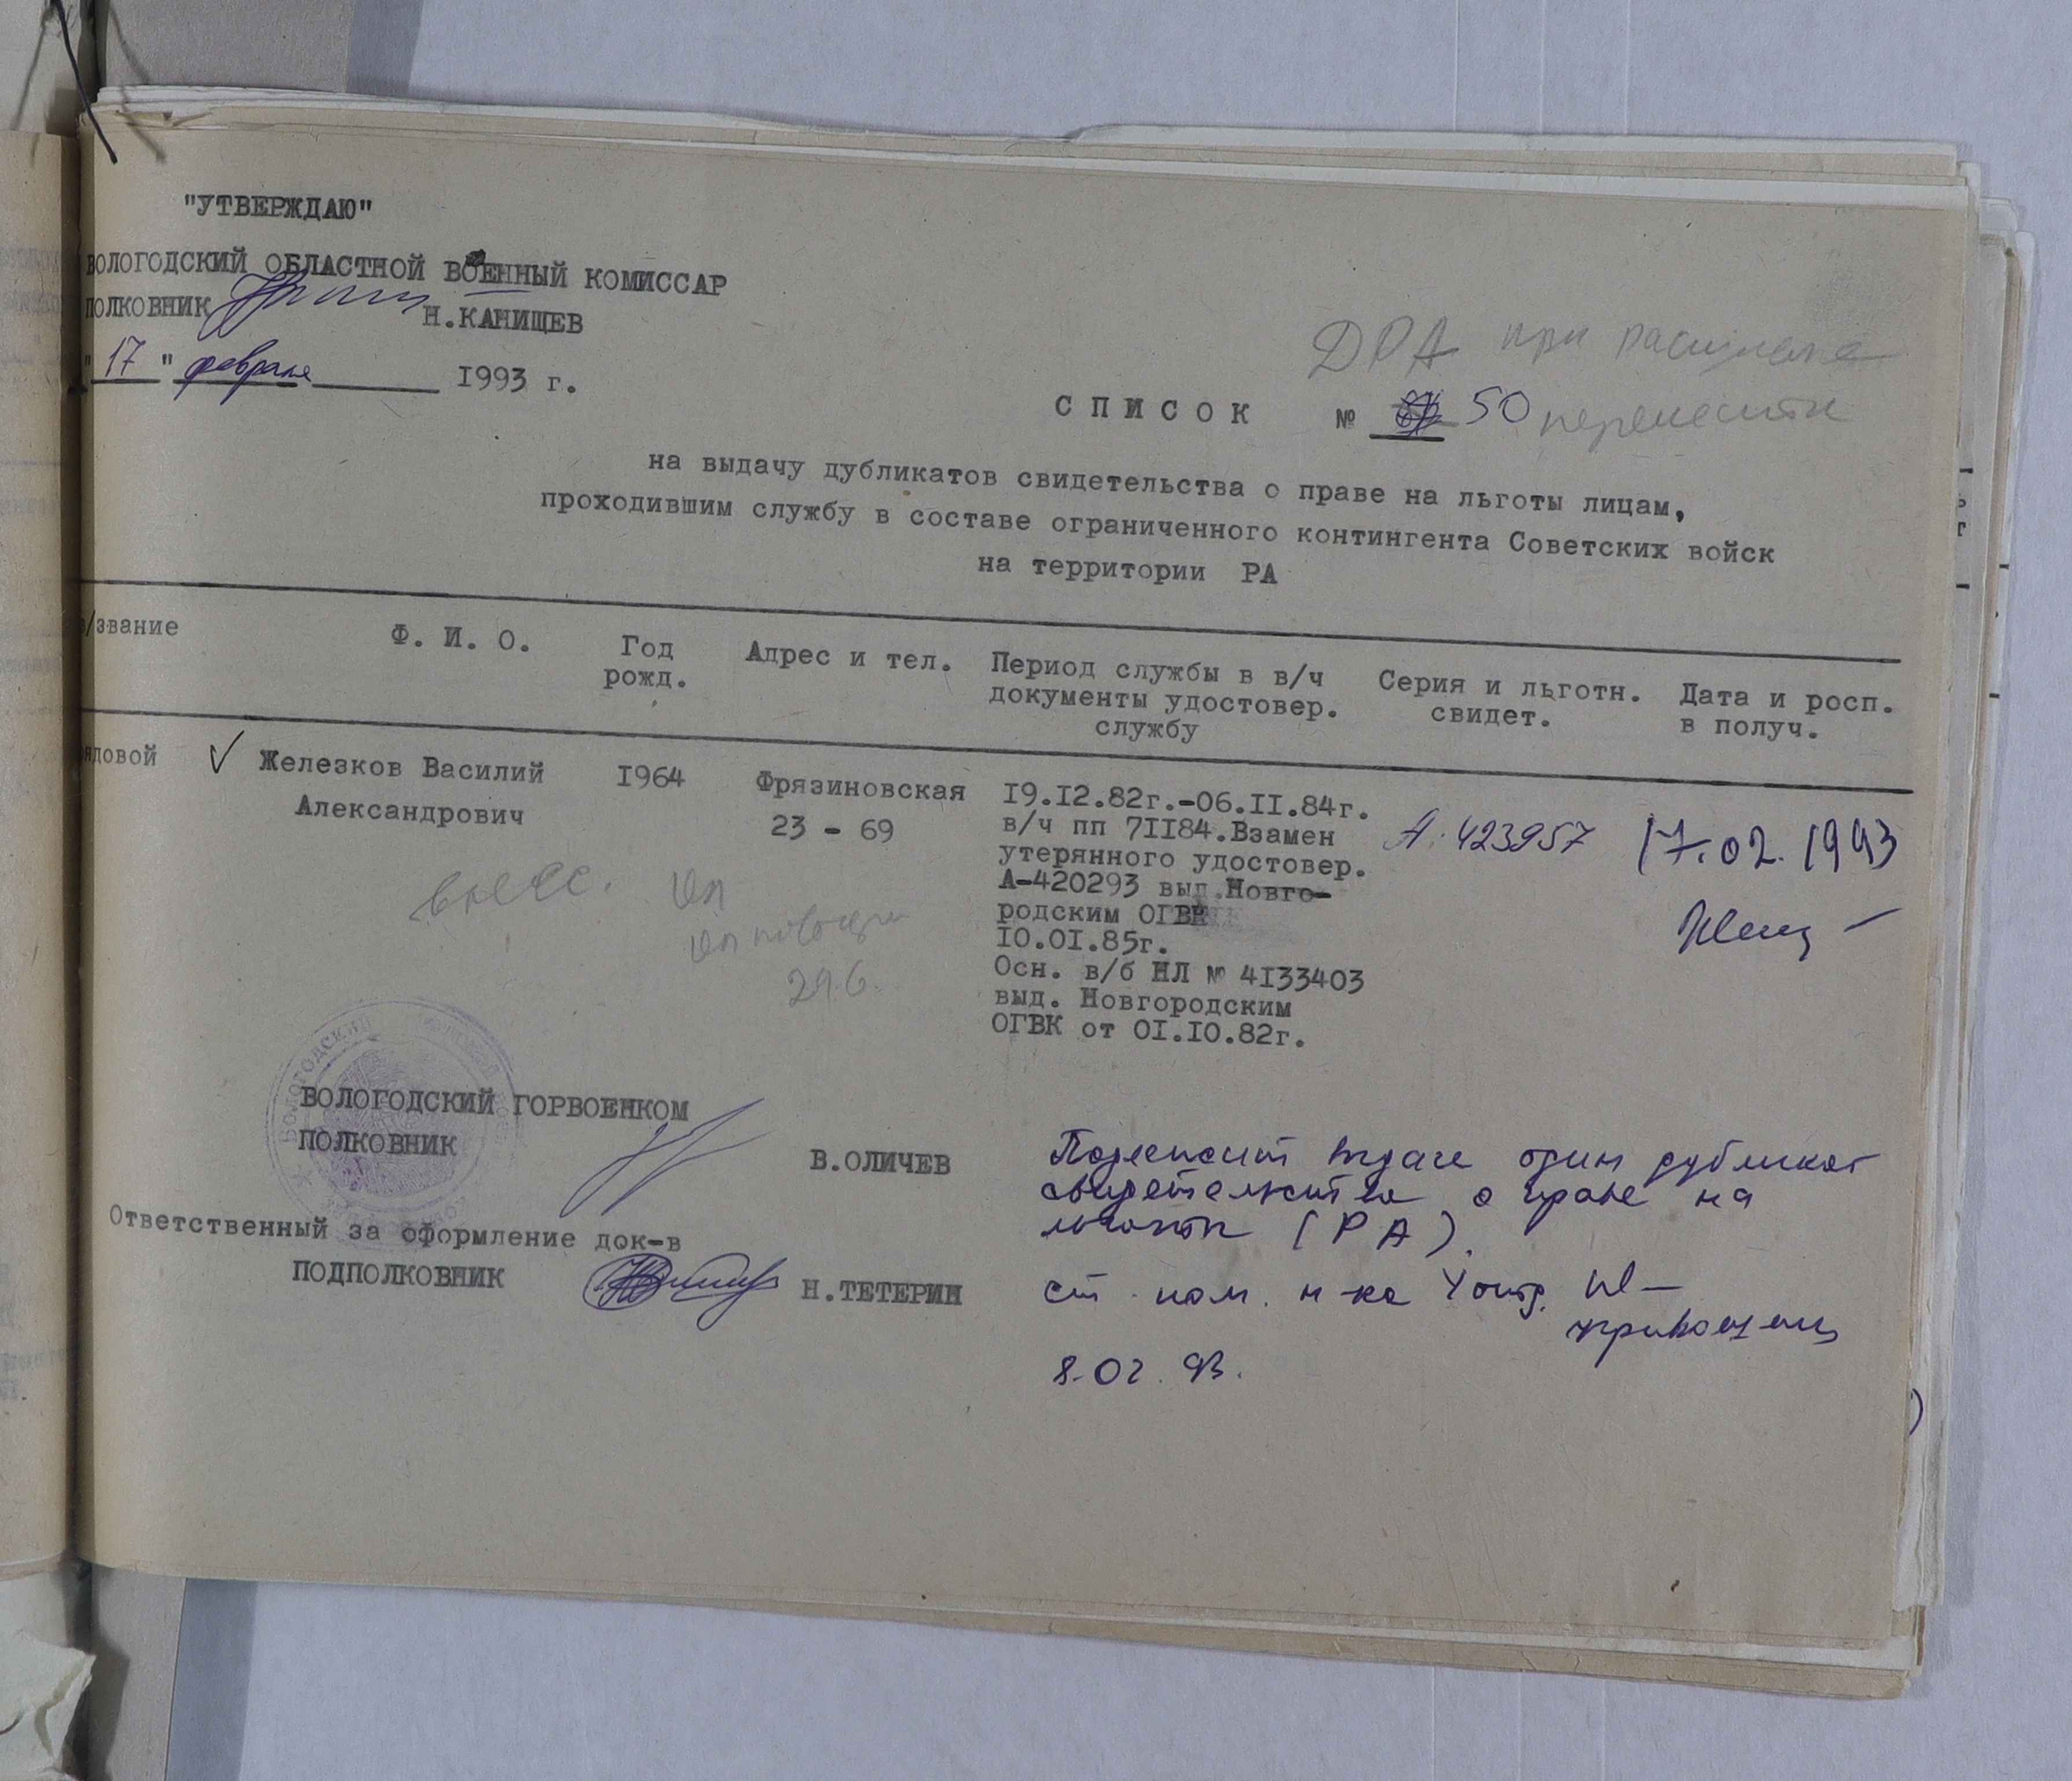 "УТВЕРЖДАЮ"
ВОЛОГОДСКИЙ ОБЛАСТНОЙ ВОЕННЫЙ КОМИССАР
ПОЛКОВНИК Н.КАНИЩЕВ
"17" февраля 1993 г.
ДРА при
СПИСОК № 50 перенести
на выдачу дубликатов свидетельства о праве на льготы лицам,
проходившим службу в составе ограниченного контингента Советских войск
на территории РА
/звание Ф. И. О. Год рожд. Адрес и тел. Период службы в в/ч документы удостовер. службу Серия и льготн. свидет. Дата и росп. в получ.
рядовой Железков Василий Александрович 1964 Фрязиновская 23 - 69
19.12.82г.-06.11.84г.
в/ч пп 71184.Взамен
утерянного удостовер.
А-420293 выд.Новго-
родским ОГВК
10.01.85г.
Осн. в/б НЛ № 4133403
выд. Новгородским
ОГВК от 01.10.82г.
А. 423957 17.02.1993
29.6.
ВОЛОГОДСКИЙ
ВОЛОГОДСКИЙ ГОРВОЕНКОМ
ПОЛКОВНИК В.ОЛИЧЕВ
Ответственный за оформление док-в
ПОДПОЛКОВНИК Н.ТЕТЕРИН
Подлежит выдаче один дубликат
свидетельства о праве на
льготы (РА).
ст. пом. н-ка 4 отд.
8.02.93.